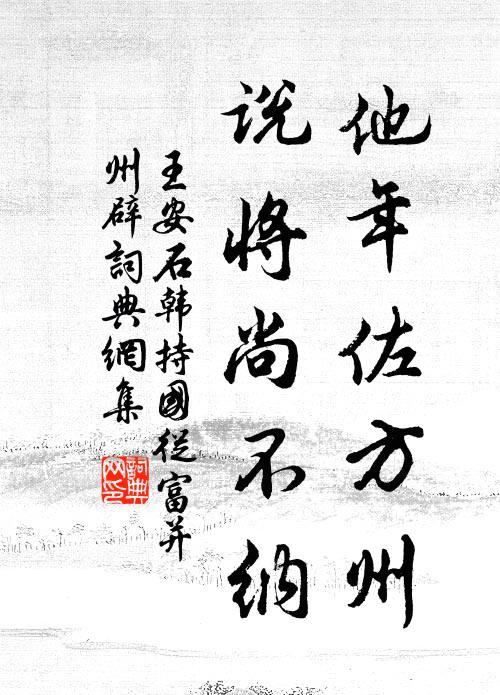 他年佐方州
说将尚不纳
王安石韩持國從富并
州辟詞典網集
詞典
网印